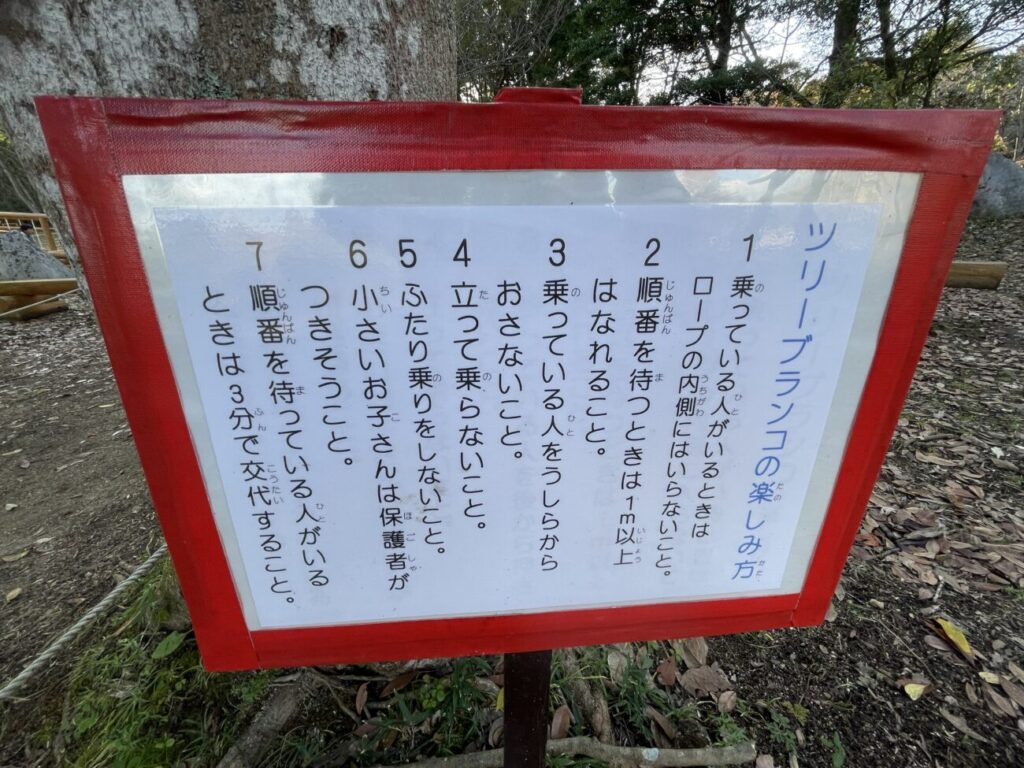 ツリーブランコの楽しみ方
1 乗っている人がいるときは
ロープの内側にはいらないこと。
2 順番を待つときは1m以上
はなれること。
3 乗っている人をうしらから
おさないこと。
4 立って乗らないこと。
5 ふたり乗りをしないこと。
6 小さいお子さんは保護者が
つきそうこと。
7 順番を待っている人がいる
ときは3分で交代すること。